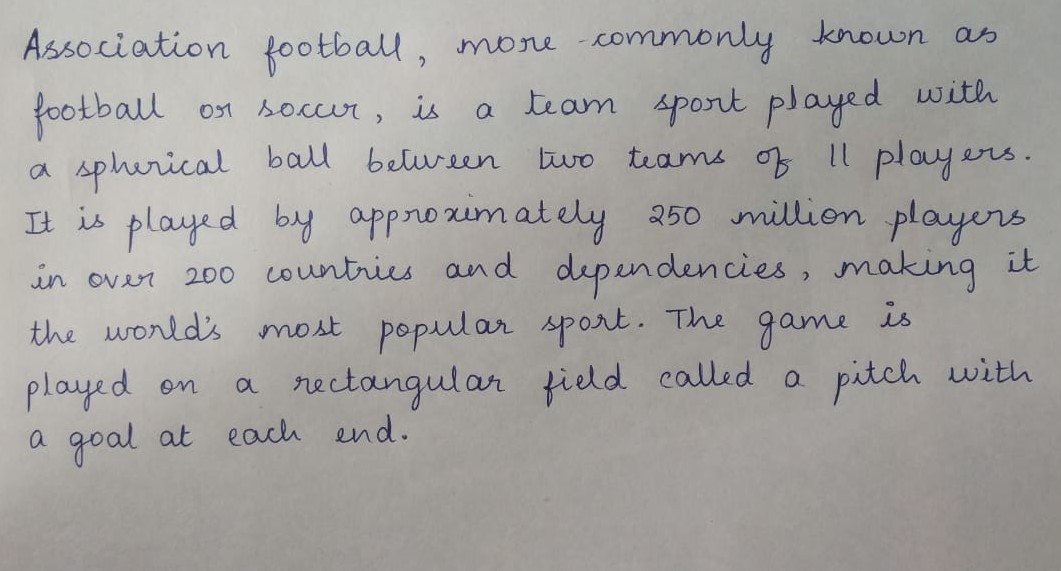 Association football, more commonly known as
football or soccer, is a team sport played with
a spherical ball between two teams of 11 players.
It is played by approximately 250 million players
in over 200 countries and dependencies, making it
the world's most popular sport. The game is
played on a rectangular field called a pitch with
a goal at each end.